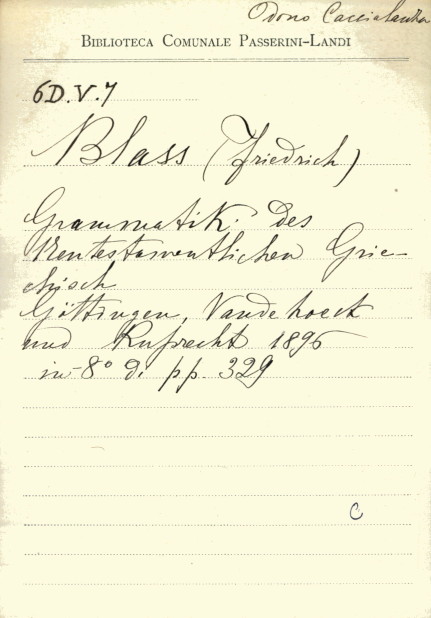 Dono Caccialanza
BIBLIOTECA COMUNALE PASSERINI-LANDI
6D.V.7
Blass (Friedrich)
Grammatik des
Neutestamentlichen Grie-
chisch
Göttingen, Vandehoeck
und Ruprecht 1896
in-8° di pp. 329
C